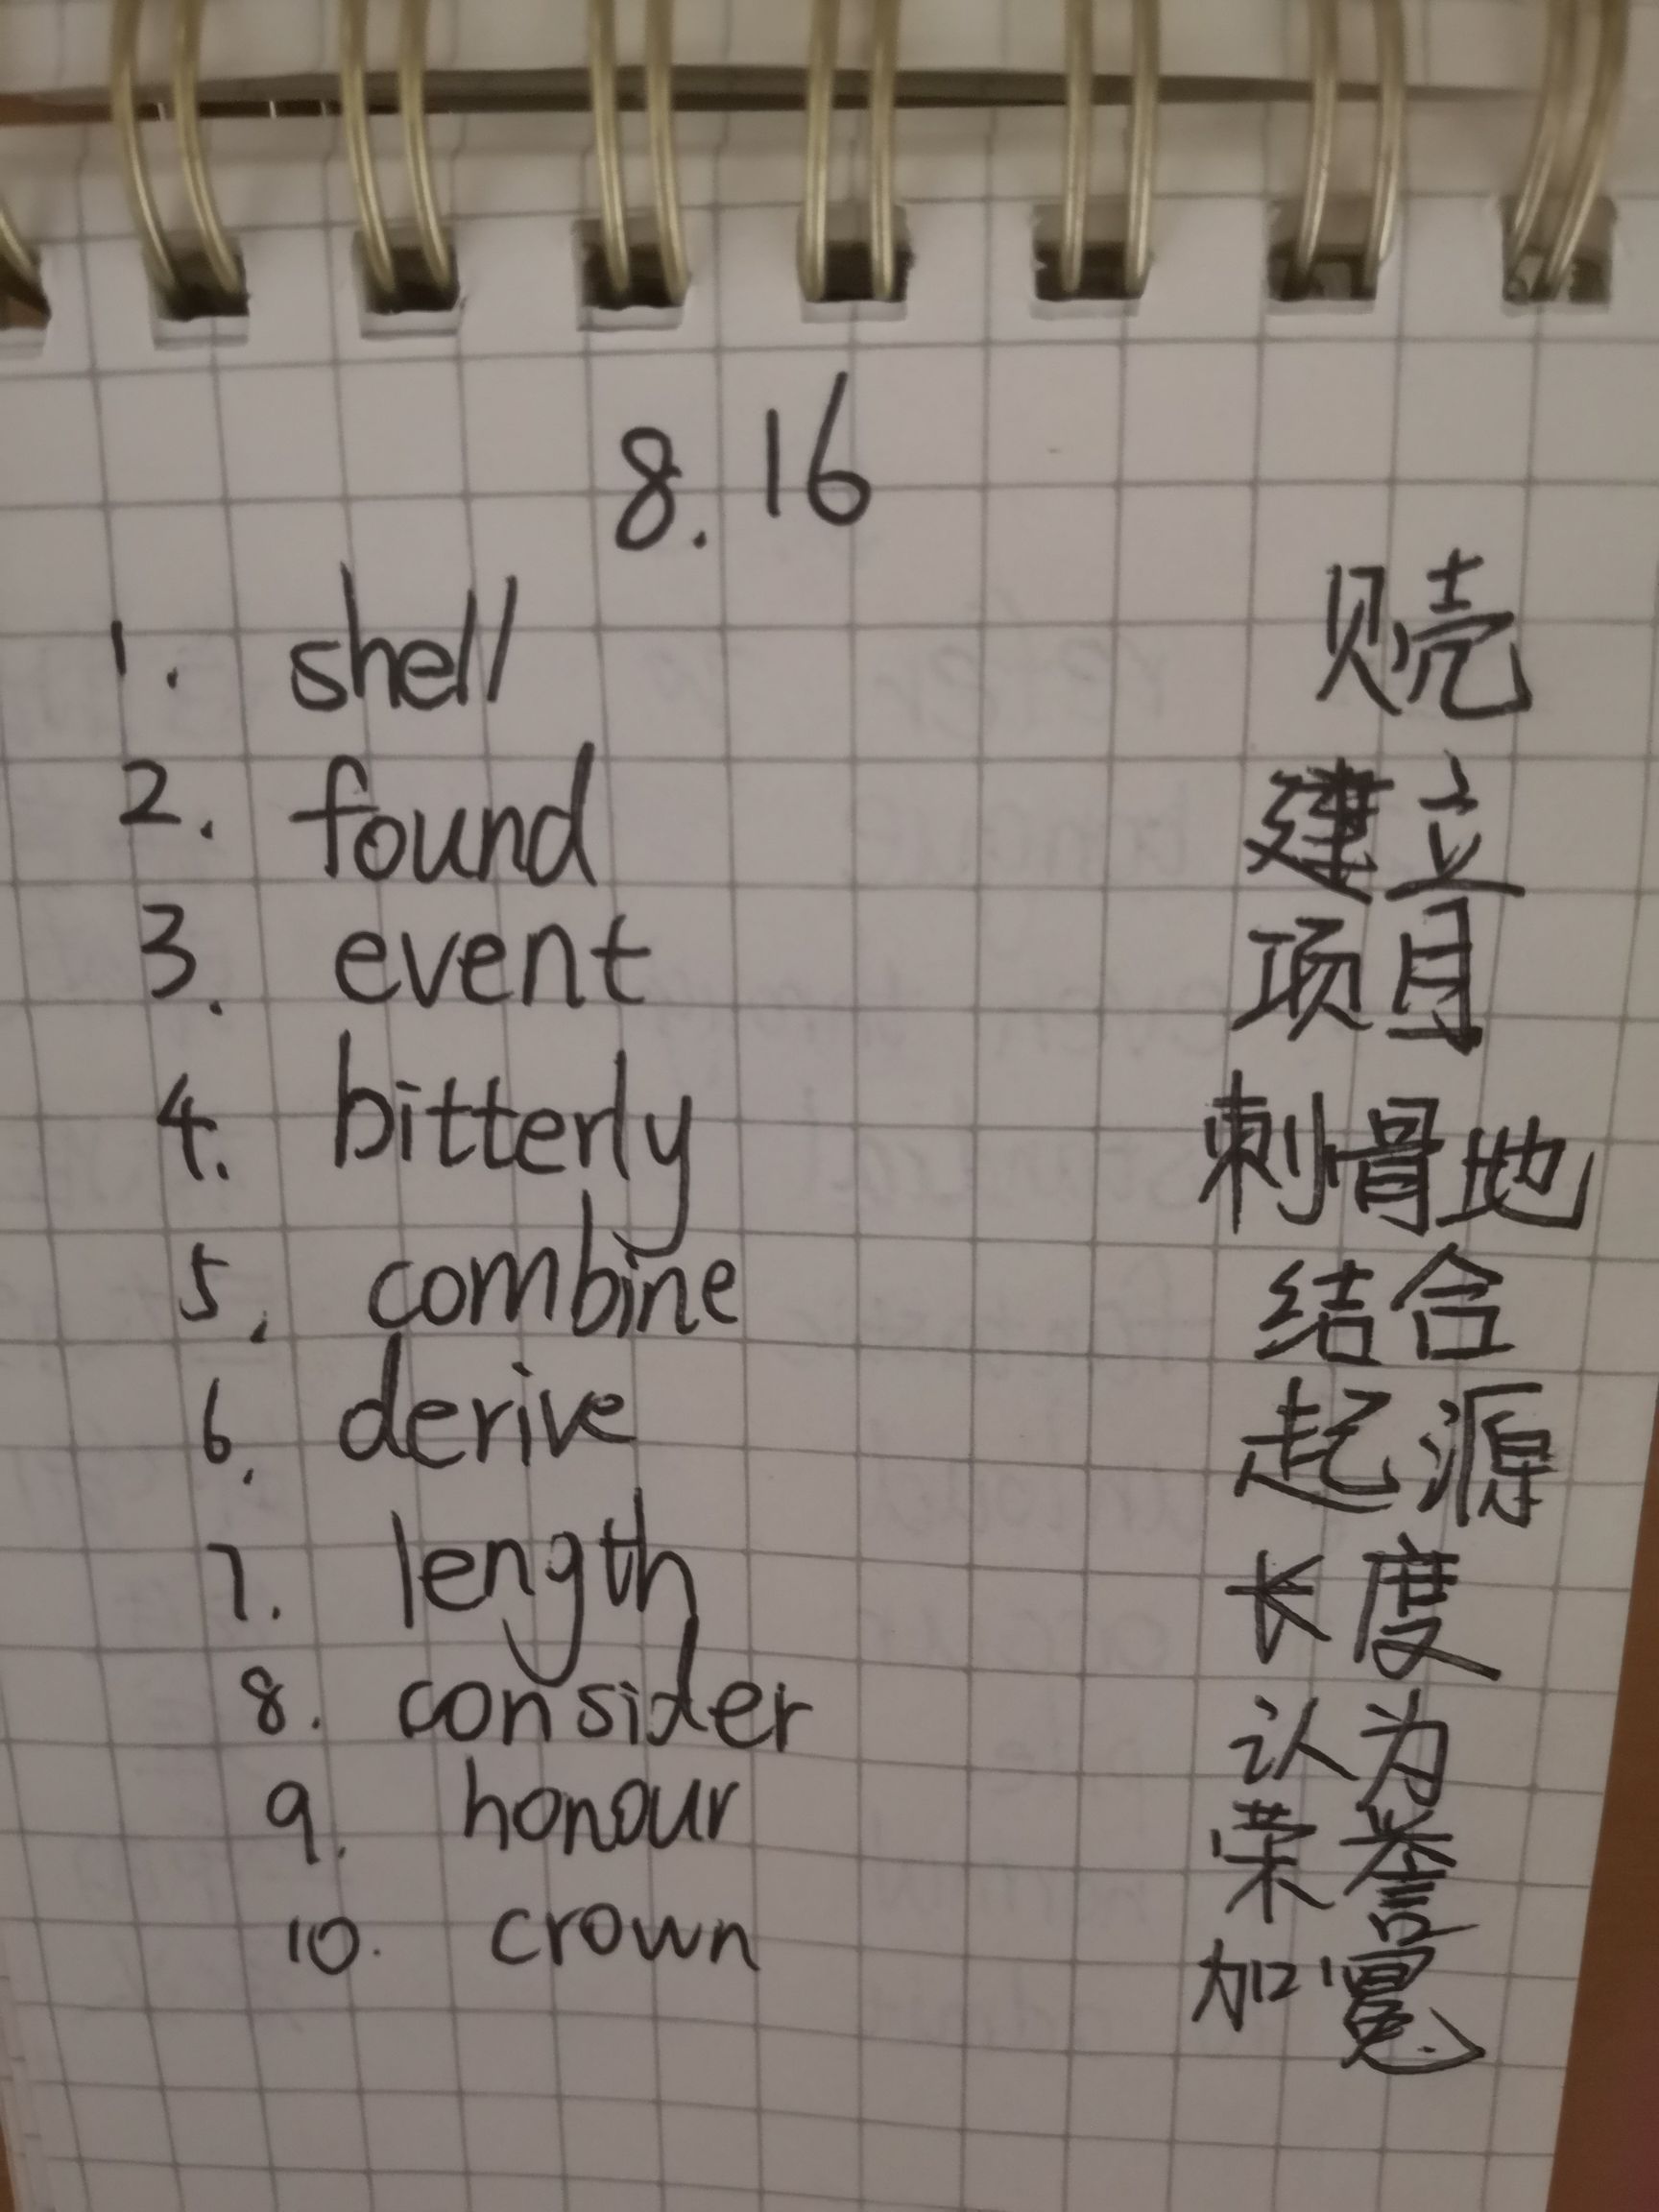 8.16
1. shell 贝壳
2. found 建立
3. event 项目
4. bitterly 刺骨地
5. combine 结合
6. derive 起源
7. length 长度
8. consider 认为
9. honour 荣誉
10. crown 加冕